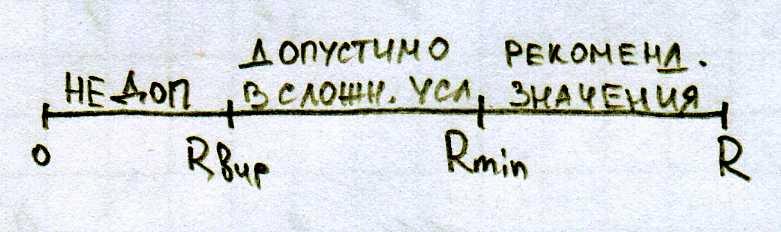 ДОПУСТИМО РЕКОМЕНД.
НЕДОП В СЛОЖН. УСЛ. ЗНАЧЕНИЯ
0 Rвир Rmin R